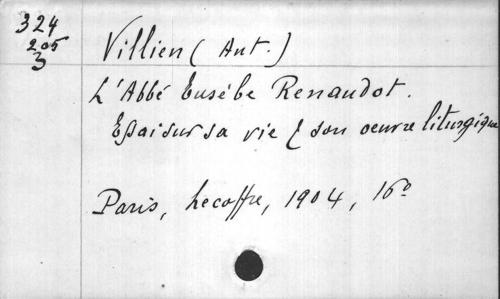 324
205
3
Villien (Ant.)
L'Abbé Eusébe Renaudot.
Essai sur sa vie & son oeuvre liturgique
Paris, Lecoffre, 1904, 16º